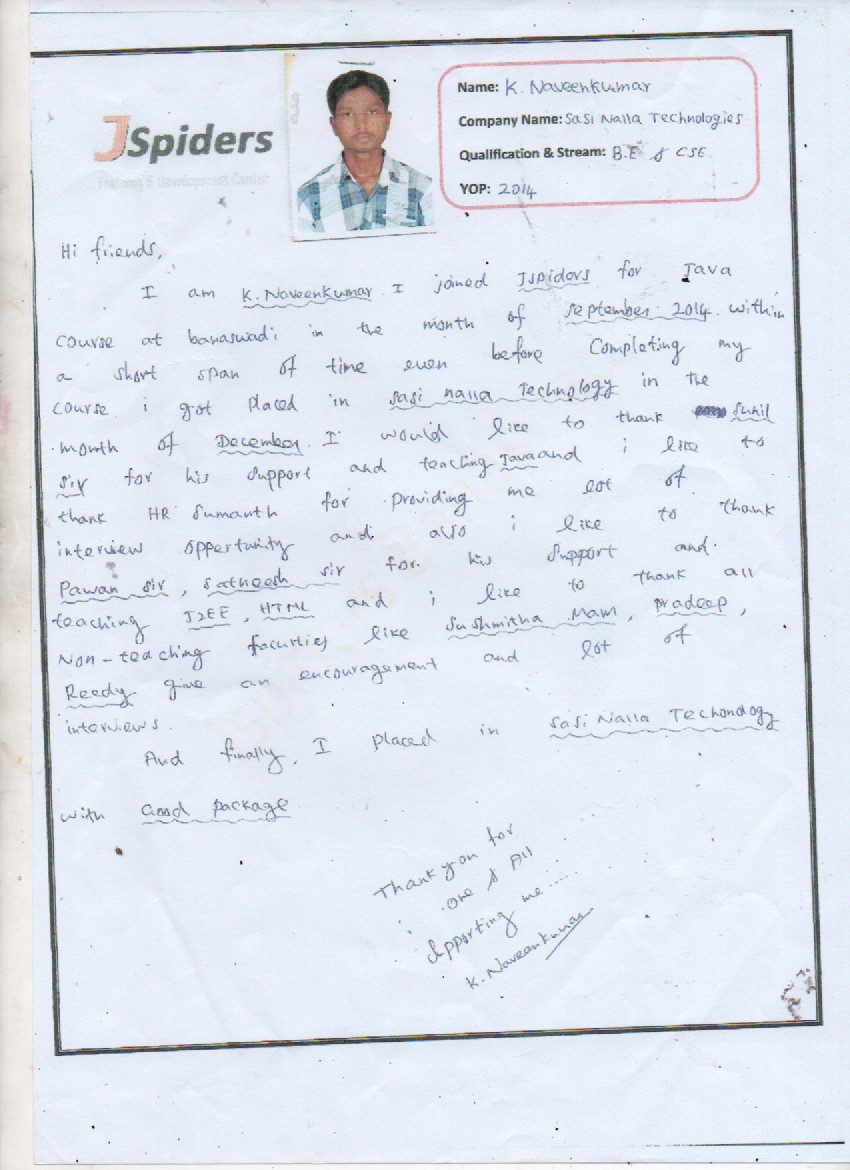 JSpiders
Training & Development Center
Name: K. Naveenkumar
Company Name: Sasi Nalla Technologies
Qualification & Stream: B.E & CSE
YOP: 2014
Hi friends,
I am K. Naveenkumar. I joined Jspiders for Java
course at banaswadi in the month of september 2014. within
a short span of time even before completing my
course i got placed in sasi nalla Technology in the
month of December. I would like to thank Sunil
sir for his support and teaching Java and i like to
thank HR Sumanth for providing me lot of
interview oppertunity and also i like to thank
Pawan sir, satheesh sir for his support and
teaching J2EE, HTML and i like to thank all
Non-teaching faculties like Sushmitha Mam, pradeep,
Reedy give an encouragement and lot of
interviews.
And finally, I placed in Sasi Nalla Techonology
with Good package
Thank you for
one & All
supporting me.....
K. Naveenkumar